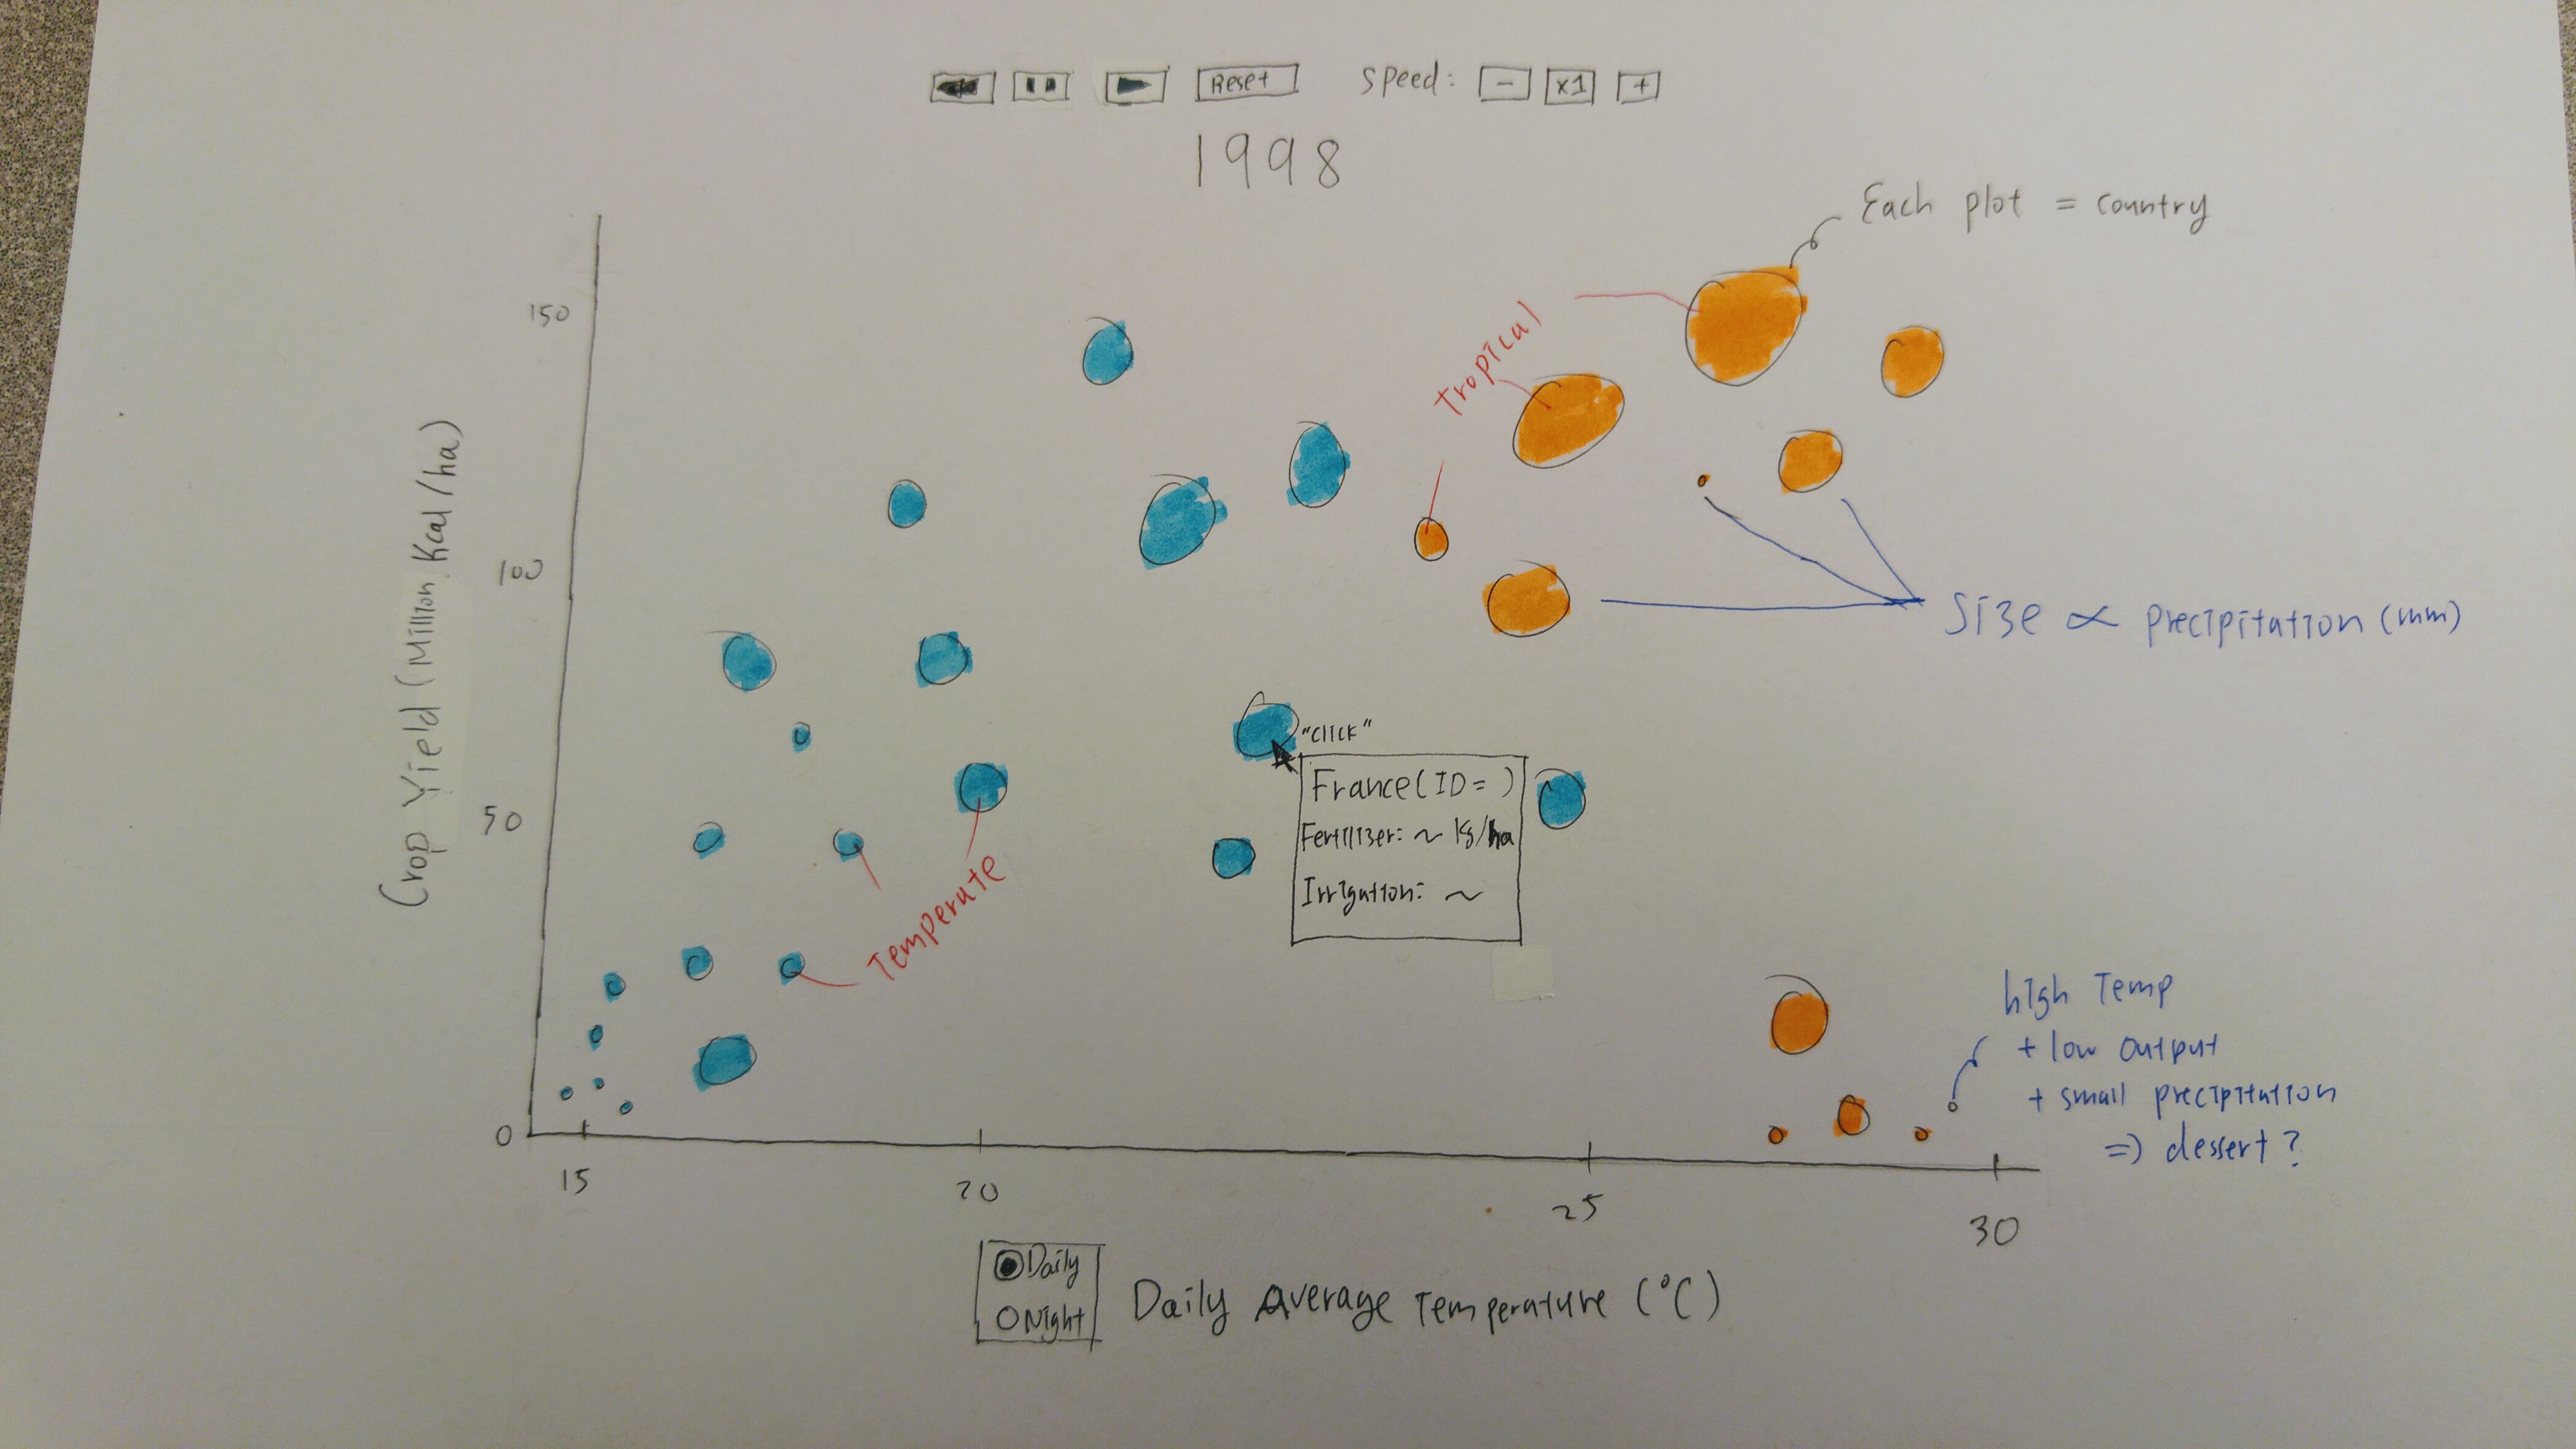 Reset Speed: - x1 +
1998
Each plot = country
150
tropical
100
Crop Yield (Million Kcal/ha)
Size ∝ precipitation (mm)
"click"
France (ID= )
Fertilizer: ~ kg/ha
Irrigation: ~
50
Temperate
high Temp
+ low output
+ small precipitation
=> dessert?
0
15
20
25
30
Daily
Night
Daily Average Temperature (°C)